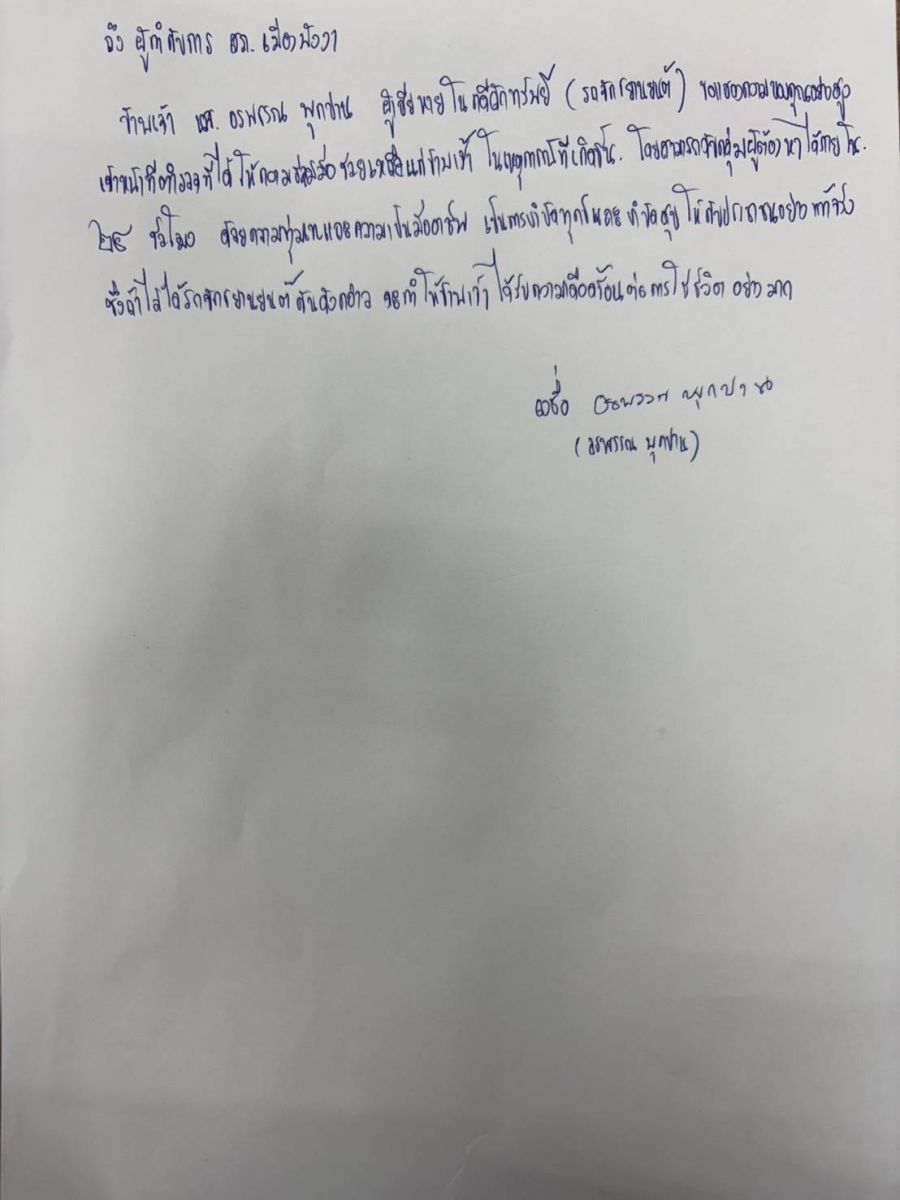 ถึง ผู้กำกับการ สภ. เมืองพังงา
ข้าพเจ้า นส. อรพรรณ พุกปาน ผู้เสียหายในคดีลักทรัพย์ (รถจักรยานยนต์) ขอแสดงความขอบคุณอย่างสูง
เจ้าหน้าที่ตำรวจที่ได้ให้ความร่วมมือช่วยเหลือแก่ข้าพเจ้า ในเหตุการณ์ที่เกิดขึ้น. โดยสามารถจับกลุ่มผู้ต้องหาได้ภายใน.
๒๔ ชั่วโมง ด้วยความทุ่มเทและความเป็นมืออาชีพ เป็นการบำบัดทุกข์และบำรุงสุข ให้กับประชาชนอย่างแท้จริง
ซึ่งถ้าไม่ได้รถจักรยานยนต์คันดังกล่าว จะทำให้ข้าพเจ้าได้รับความเดือดร้อนต่อการใช้ชีวิตอย่างมาก
ลงชื่อ อรพรรณ พุกปาน
(อรพรรณ พุกปาน)